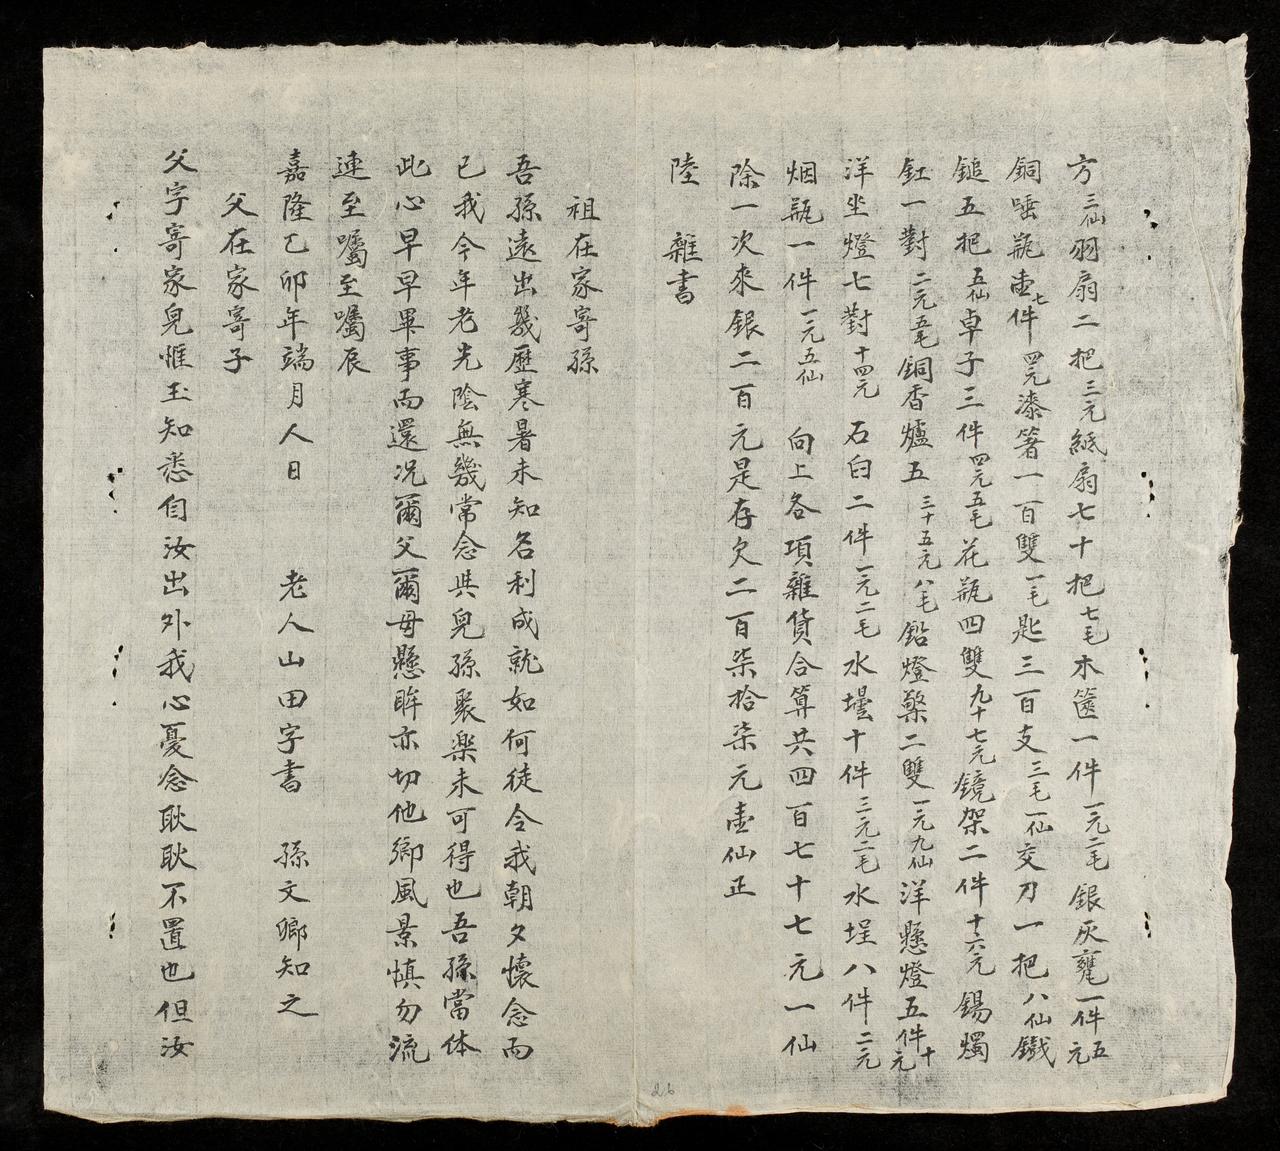 方三仙羽扇二把三元紙扇七十把七毛木篋一件一元二毛銀灰甕一件五元
銅唾瓶壷七件四元漆箸一百雙一毛匙三百支三毛一仙交刀一把八仙鐵
鎚五把五仙卓子三件四元五毛花瓶四雙九十七元鏡架二件十六元錫燭
釭一對二元五毛銅香爐五三十五元八毛鉛燈檠二雙一元九仙洋懸燈五件十元
洋坐燈七對十四元石臼二件一元二毛水壜十件三元二毛水埕八件二元
烟瓶一件一元五仙 向上各項雜貨合算共四百七十七元一仙
除一次來銀二百元是存欠二百柒拾柒元壷仙正
陸 雜書
祖在家寄孫
吾孫遠出幾歷寒暑未知名利成就如何徒令我朝夕懷念而
已我今年老光陰無幾常念與兒孫聚楽未可得也吾孫當体
此心早早畢事而還况爾父爾母懸眸亦切他鄉風景慎勿流
連至囑至囑辰
嘉隆乙卯年端月人日 老人山田字書 孫文鄉知之
父在家寄子
父字寄家兒惟玉知悉自汝出外我心憂念耿耿不置也但汝
26